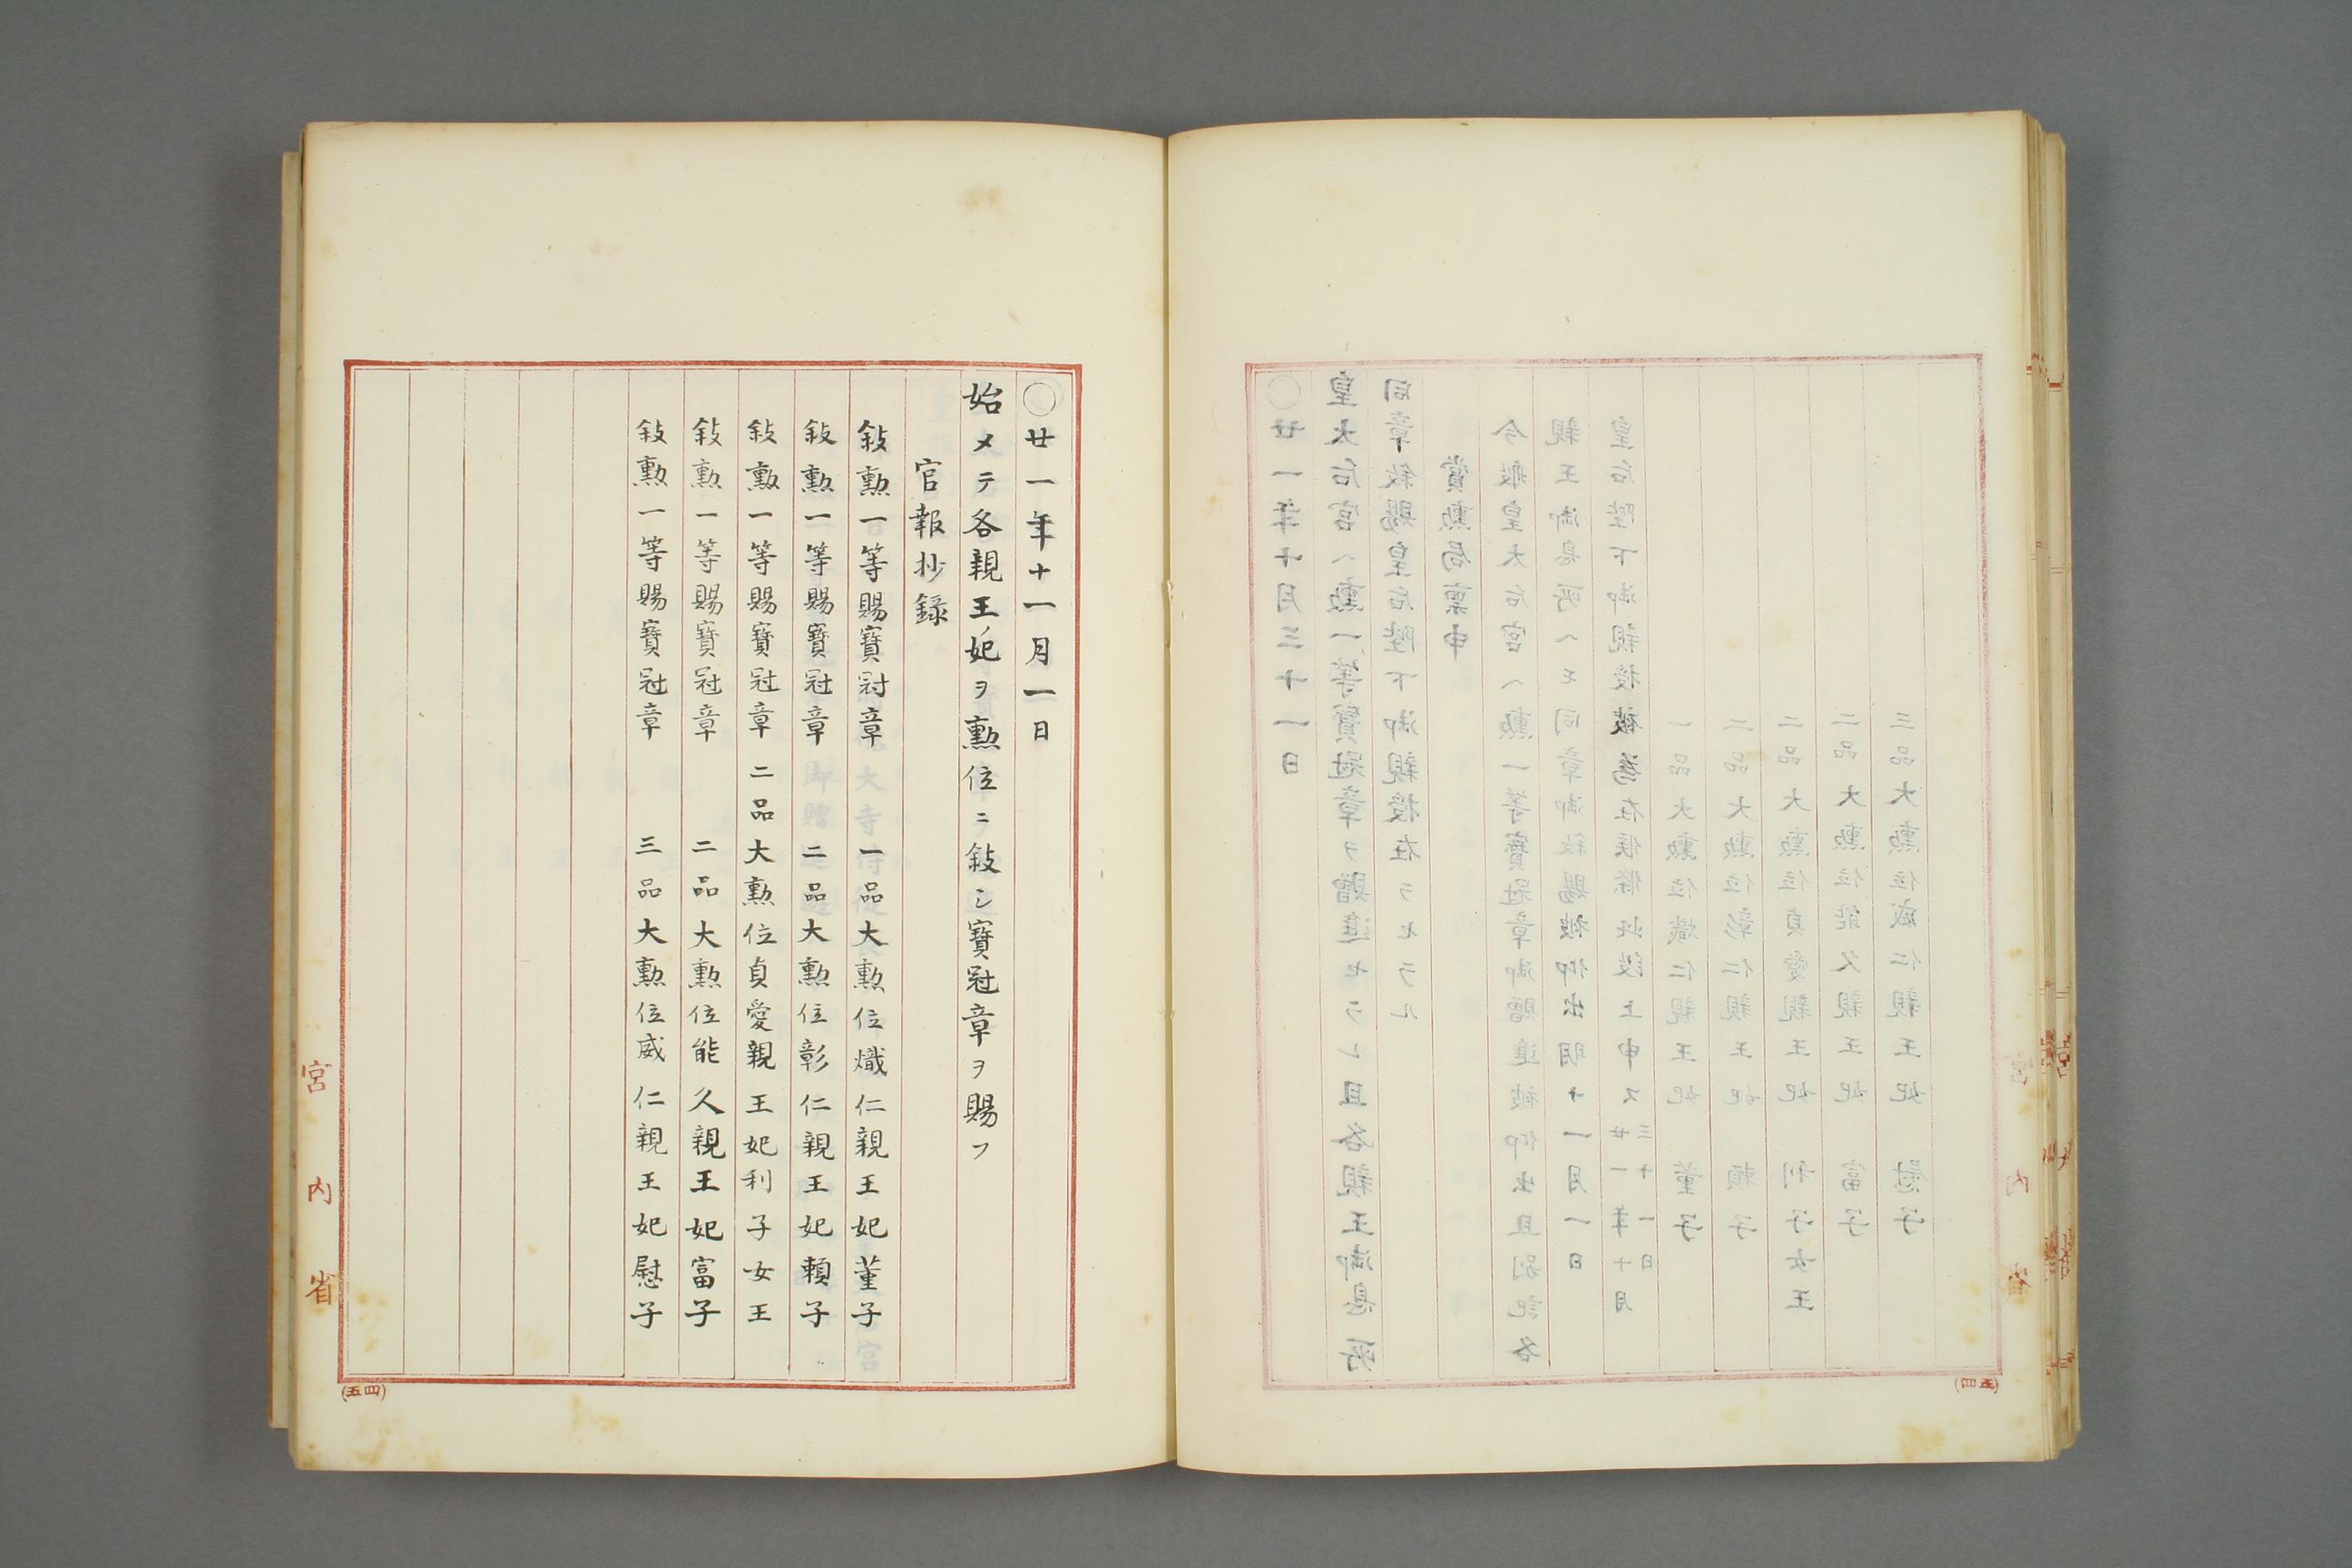 〇廿一年十一月一日
始メテ各親王妃ヲ勲位ニ敍シ寶冠章ヲ賜フ
官報抄録
敍勲一等賜寶冠章 一品大勲位熾仁親王妃董子
敍勲一等賜寶冠章 二品大勲位彰仁親王妃頼子
敍勲一等賜寶冠章 二品大勲位貞愛親王妃利子女王
敍勲一等賜寶冠章 二品大勲位能久親王妃富子
敍勲一等賜寶冠章 三品大勲位威仁親王妃慰子
宮内省
(五四)
〇廿一年十月三十一日
皇太后宮ヘ勲一等寶冠章ヲ贈進セラレ且各親王御息所
同章敍賜皇后陛下御親授在ラセラル
賞勲局稟申
今般皇太后宮ヘ勲一等寶冠章御贈進被仰出且別記各
親王御息所ヘモ同章御敍賜被仰出明十一月一日
皇后陛下御親授被為在候條此段上申ス 廿一年十月三十一日
一品大勲位熾仁親王妃 董子
二品大勲位彰仁親王妃 頼子
二品大勲位貞愛親王妃 利子女王
二品大勲位能久親王妃 富子
三品大勲位威仁親王妃 慰子
宮内省